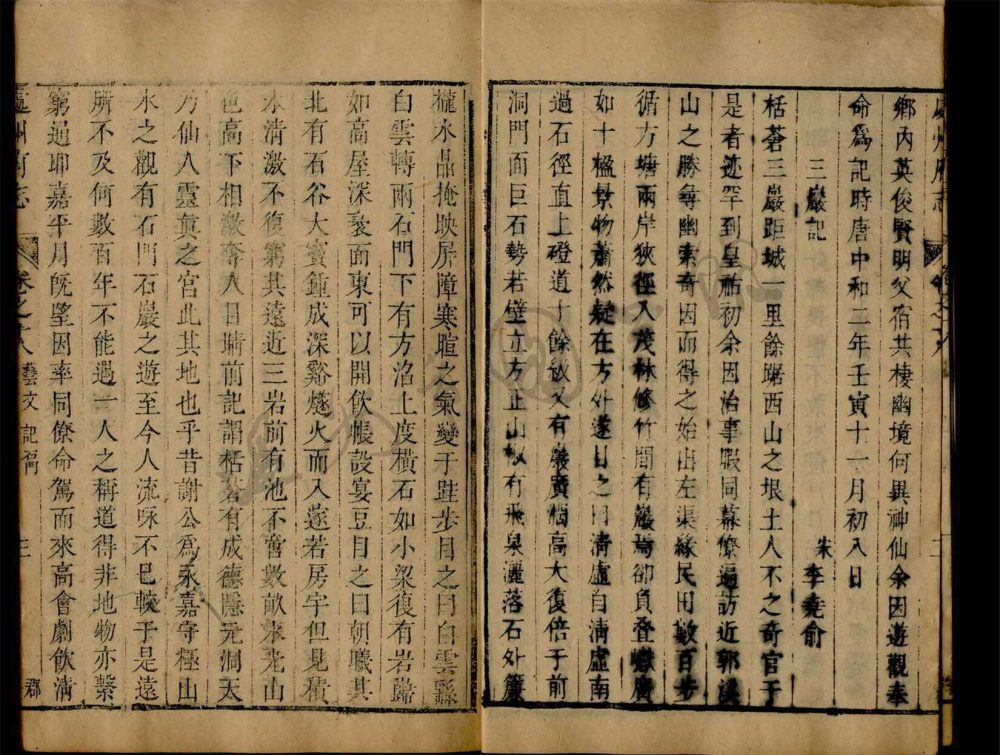 處州府志
鄉內英俊賢明父宿共棲幽境何異神仙余因遊觀奉
命為記時唐中和二年壬寅十一月初入日
三巖記
朱 李堯俞
栝蒼三巖距城一里餘踞西山之垠土人不之奇官于
是者迹罕到皇祐初余因治事暇同幕僚遍訪近郭溪
山之勝尋幽索奇因而得之始出左渠緣民田數百步
循方塘兩岸狹徑入茂林修竹間有巖焉卻負登巘廣
如十楹景物蕭然疑在方外遂目之曰清虛自清虛南
過石徑直上磴道十餘級又有巖廣惱高大復倍于前
洞門面巨石勢若壁立方正山椒有飛泉灑落石外簾
櫳水晶掩映屏障寒暄之氣變于跬步目之曰白雲繇
白雲轉兩石門下有方沼上度橫石如小梁復有岩巋
如高屋深邃面東可以開飲帳設宴豆目之曰朝曦其
北有石谷大竇鍾成深谿燧火而入遂若房宇但見積
水清澈不復窮其遠近三岩前有池不啻數畝水光山
色高下相激奪人目睛前記謂栝蒼有成德隱元洞天
乃仙人靈眞之官此其地也乎昔謝公為永嘉守極山
水之觀有石門石巖之遊至今人流咏不已較于是遠
所不及何數百年不能遇一人之稱道得非地物亦繫
窮通耶嘉平月旣望因率同僚命駕而來高會劇飲淸
處州府志
卷之十八藝文 記
三
郡